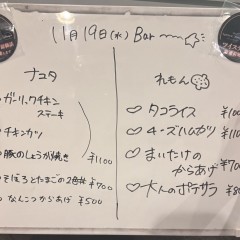 11月19日(水) Bar
ナユタ
ガーリックチキン
ステーキ
チキンカツ
豚のしょうが焼き
¥1100
そぼろとたまごの2色丼 ¥700
なんこつからあげ ¥500
れもん
タコライス
チーズハムカツ
まいたけの
からあげ
大人のポテサラ